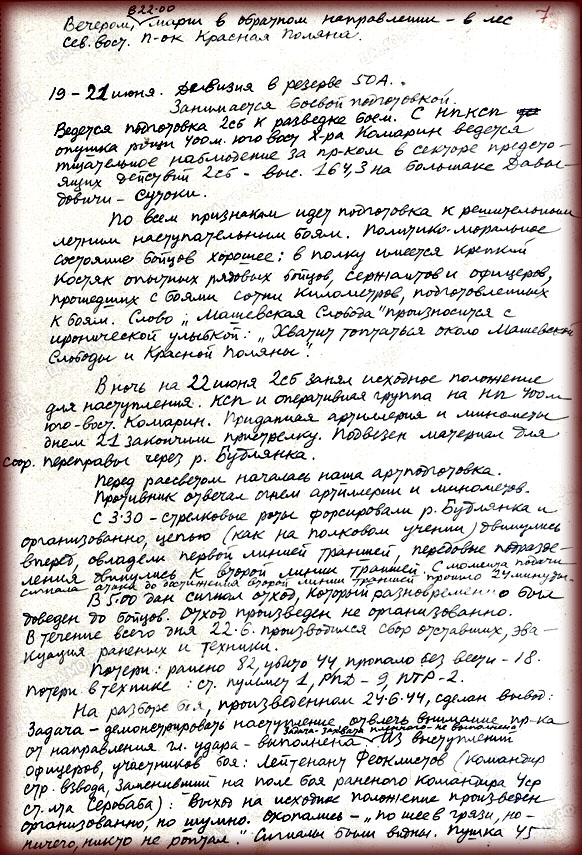 В 22.00
7
Вечером, марш в обратном направлении – в лес
сев. вост. п-ок Красная Поляна.
19 – 21 июня. Дивизия в резерве 50А.
Занимается боевой подготовкой.
Ведется подготовка 2сб к разведке боем. С НПКСП
опушка рощи 400м. юго вост Х-ра Комарин ведется
тщательное наблюдение за пр-ком в секторе предсто-
ящих действий 2сб – выс. 164,3 на большаке Давы-
довичи – Сутоки.
По всем признакам идет подготовка к решительным
летним наступательным боям. Политико-моральное
состояние бойцов хорошее: в полку имеется крепкий
костяк опытных рядовых бойцов, сержантов и офицеров,
прошедших с боями сотни километров, подготовленных
к боям. Слово „Машевская Слобода" произносится с
иронической улыбкой: „Хватит топтаться около Машевской
Слободы и Красной Поляны".
В ночь на 22 июня 2сб занял исходное положение
для наступления. КСП и оперативная группа на НП 400м
юго-вост. Комарин. Приданная артиллерия и минометы
днем 21 закончили пристрелку. Подвезен материал для
соор. переправы через р. Бублянка.
Перед рассветом началась наша артподготовка.
Противник отвечал огнем артиллерии и минометов.
С 3.30 – стрелковые роты форсировали р. Бублянка и
организованно, цепью (как на полковом учении) двинулись
вперед, овладели первой линией траншей, передовые подразде-
ления двинулись к второй линии траншей. С момента подачи
сигнала атака до достижения второй линии траншей прошло 24 минуты.
В 5.00 дан сигнал отход, который разновременно был
доведен до бойцов. Отход произведен не организованно.
В течение всего дня 22.6. производился сбор отставших, эва-
куация раненых и техники.
Потери: ранено 82, убито 44, пропало без вести – 18.
Потери в технике: ст. пулемет 1, РПД – 9, ПТР – 2.
На разборе боя, произведенном 24.6.44, сделан вывод:
Задача – демонстрировать наступление, отвлечь внимание пр-ка
Задача – захвата пленного – не выполнена
от направления гл. удара – выполнена. Из выступлений
офицеров, участников боя: лейтенант Феоктистов (командир
стр. взвода, заменивший на поле боя раненого командира 4ср
ст. л-та Серобаба): Выход на исходное положение произведен
организованно, но шумно. Окопались – „по шее в грязи, но –
ничего, никто не роптал". Сигналы были видны. Пушка 45 –